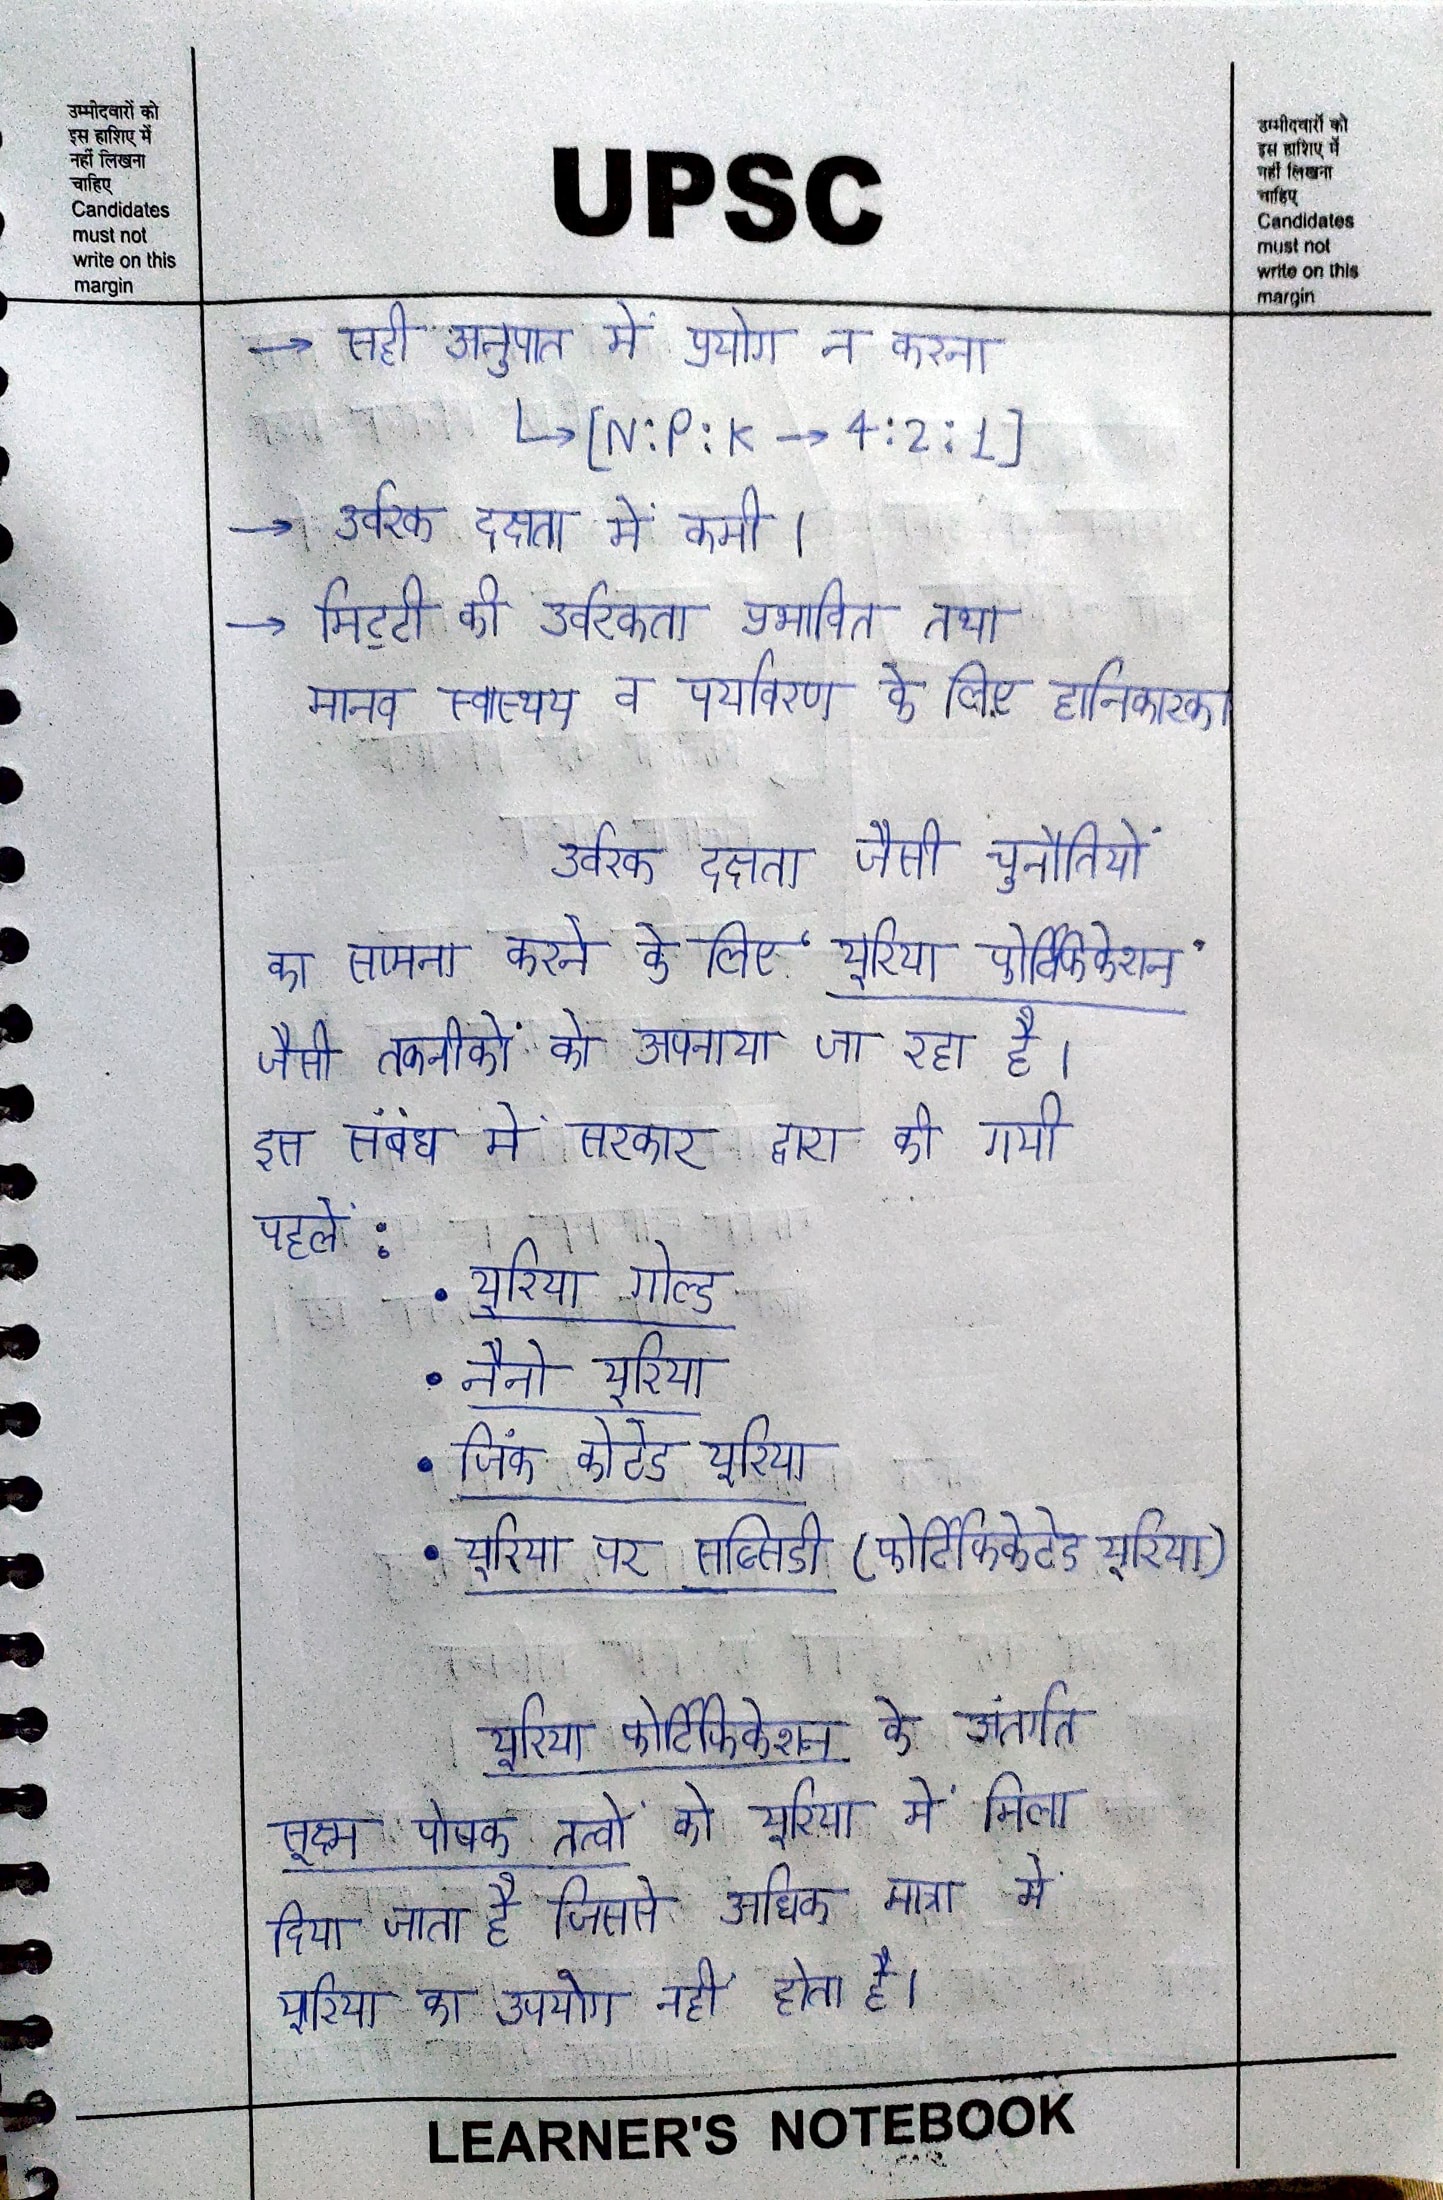 उम्मीदवारों को
इस हाशिए में
नहीं लिखना
चाहिए
Candidates
must not
write on this
margin
UPSC
उम्मीदवारों को
इस हाशिए में
नहीं लिखना
चाहिए
Candidates
must not
write on this
margin
→ सही अनुपात में प्रयोग न करना
↳ [N:P:K → 4:2:1]
→ उर्वरक दक्षता में कमी ।
→ मिट्टी की उर्वरकता प्रभावित तथा
मानव स्वास्थय व पर्यावरण के लिए हानिकारक।
उर्वरक दक्षता जैसी चुनौतियों
का सामना करने के लिए ‘यूरिया फोर्टिफिकेशन’
जैसी तकनीकों को अपनाया जा रहा है ।
इस संबंध में सरकार द्वारा की गयी
पहलें :
• यूरिया गोल्ड
• नैनो यूरिया
• जिंक कोटेड यूरिया
• यूरिया पर सब्सिडी (फोर्टिफिकेटेड यूरिया)
यूरिया फोर्टिफिकेशन के अंतर्गत
सूक्ष्म पोषक तत्वों को यूरिया में मिला
दिया जाता है जिससे अधिक मात्रा में
यूरिया का उपयोग नहीं होता है।
LEARNER'S NOTEBOOK